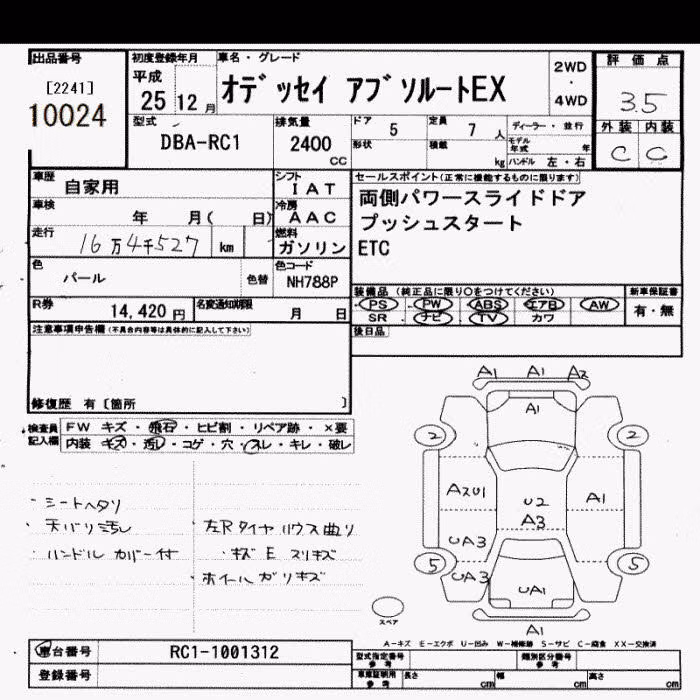 出品番号
[2241]
10024
初度登録年月
平成
25 12 月
車名・グレード
オデッセイ アブソルートEX
2WD
・
4WD
評価点
3.5
外装 内装
C C
型式
DBA-RC1
排気量
2400
CC
ドア
5
形状
定員
7 人
積載
kg
ディーラー・並行
モデル年式 年
ハンドル 左・右
車歴
自家用
車検
年 月( 日)
走行
16万4千527 km
色
パール
色替
シフト
IAT
冷房
AAC
燃料
ガソリン
色コード
NH788P
セールスポイント(正常に機能するものに限ります)
両側パワースライドドア
プッシュスタート
ETC
装備品(純正品に限り〇をつけてください)
PS PW ABS エアB AW
SR ナビ TV カワ
新車保証書
有・無
後日品
R券
14,420 円
名変通知期限
月 日
注意事項申告欄(不具合内容等は具体的に記入して下さい)
修復歴 有〔箇所 〕
検査員
記入欄
FW キズ・飛石・ヒビ割・リペア跡・×要
内装 キズ・汚レ・コゲ・穴・スレ・キレ・破レ
・シートヘタリ
・天バリ汚レ
・ハンドルカバー付
・左Rタイヤハウス曲り
・キズE スリキズ
・ホイールガリキズ
A1 A1 A2
A1
2 2
A2U1
U2
A1
A3
UA3
5 UA3 5
UA1
A1
スペア
A-キズ E-エクボ U-凹み W-補修跡 S-サビ C-腐食 XX-交換済
車台番号
RC1-1001312
登録番号
型式指定番号
参考
類別区分番号
参考
車庫証明用
参考
長さ cm
幅 cm
高さ cm